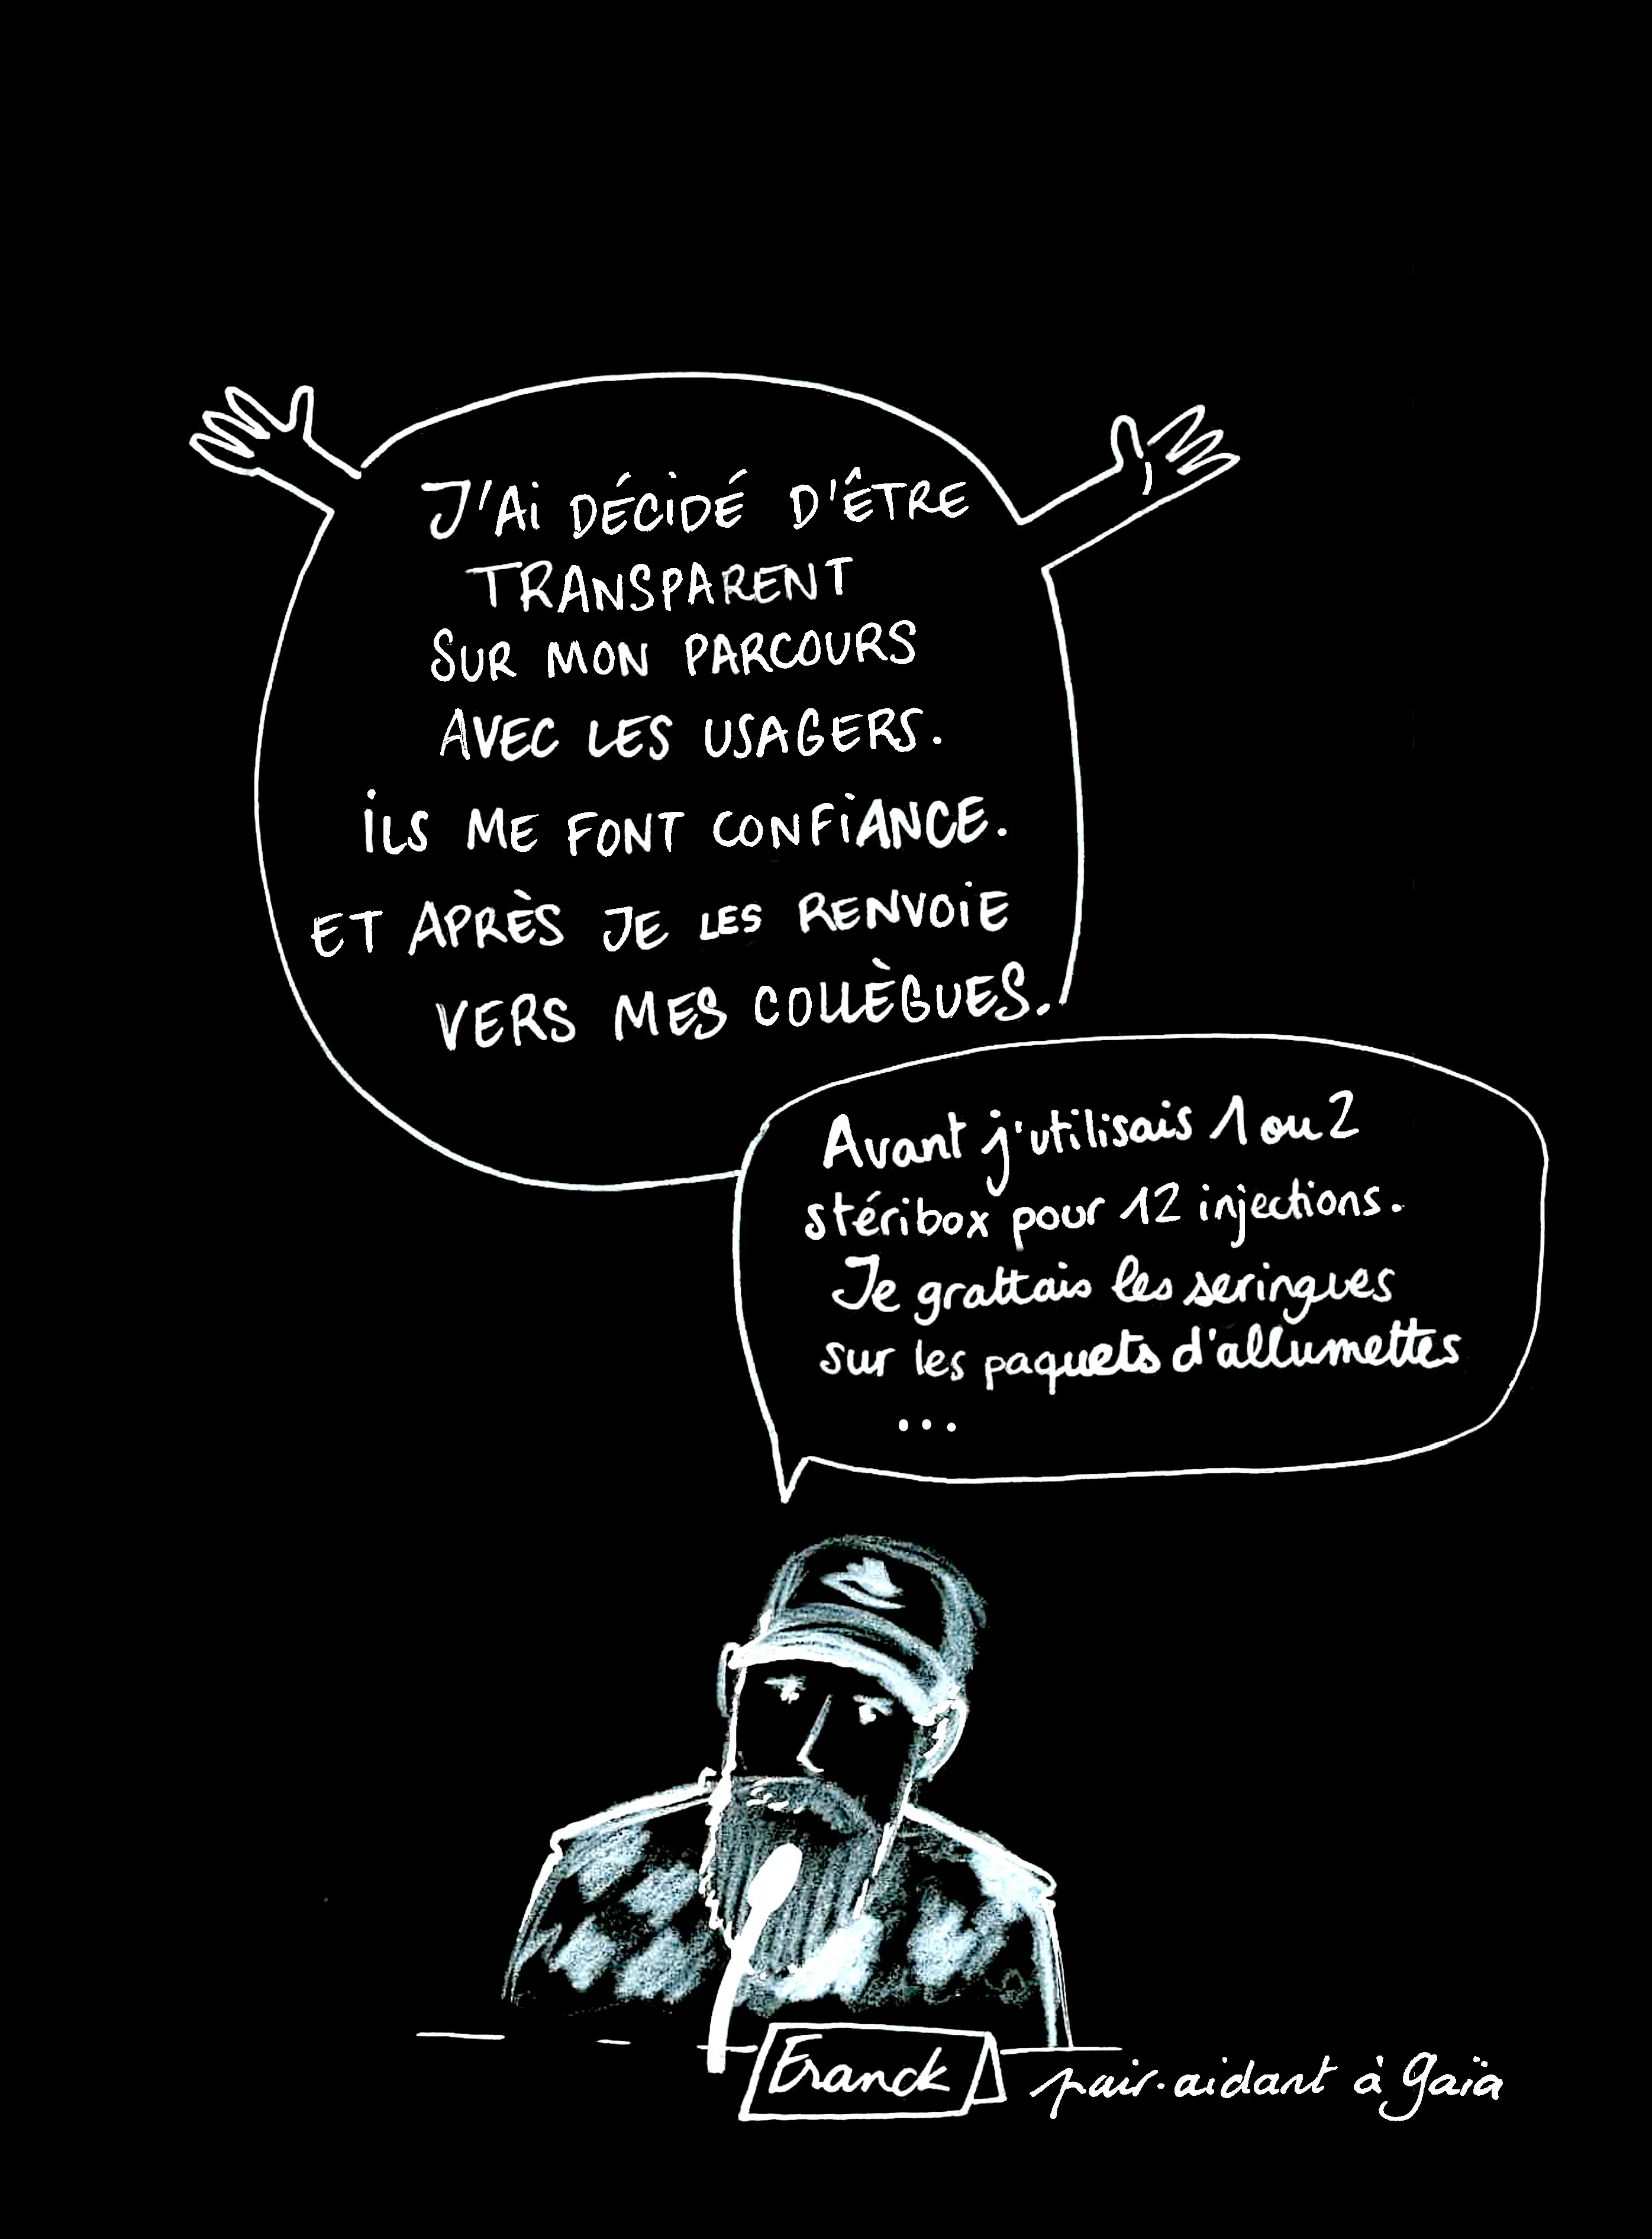 J'Ai DÉCiDÉ D'ÊTRE
TRANSPARENT
SUR MON PARCOURS
AVEC LES USAGERS.
iLS ME FONT CONFiANCE.
ET APRÈS JE LES RENVOiE
VERS MES COLLÈGUES.
Avant j'utilisais 1 ou 2
stéribox pour 12 injections.
Je grattais les seringues
sur les paquets d'allumettes
...
Franck
pair-aidant à Gaïa